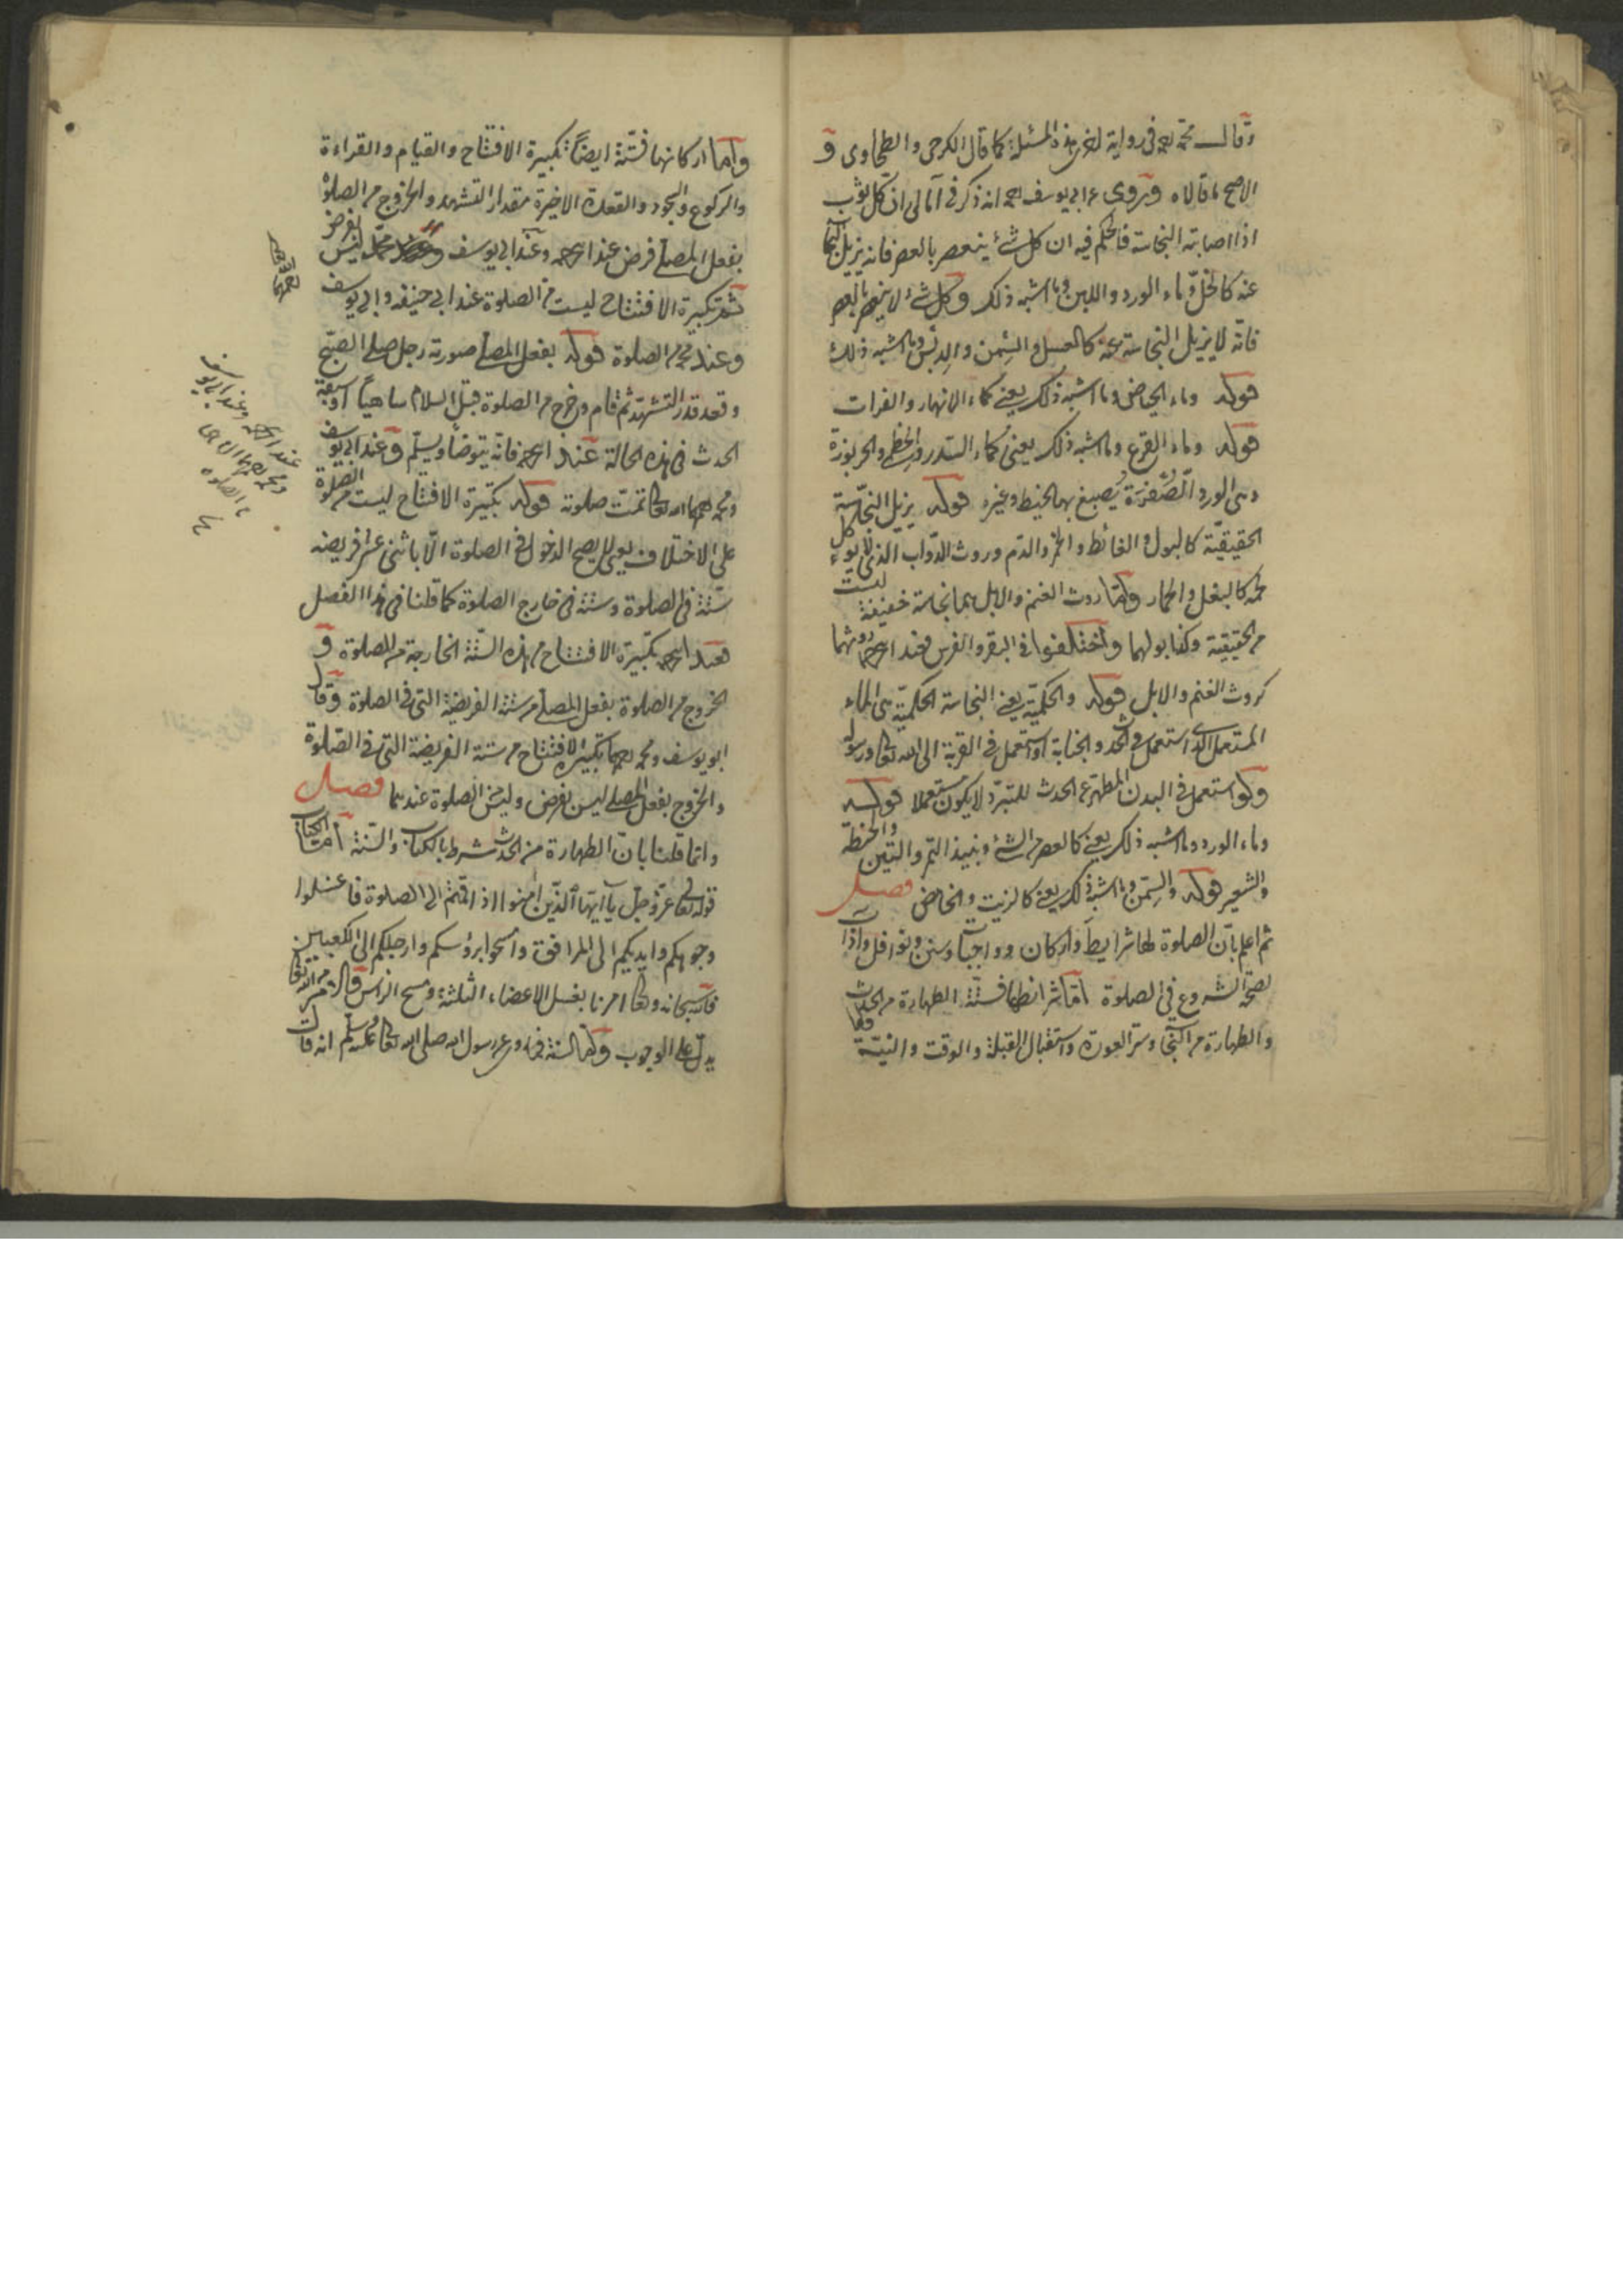 وقال محمد رحمه في رواية اخرى هذه المسئلة كما قال الكرخى والطحاوى و
الاصح ما قالاه وروى عن ابى يوسف رحمه انه ذكر فى آمالى ان كل ثوب
اذا اصابته النجاسة فالحكم فيه ان كل شئ ينعصر بالعصر فانه يزيل النجا
عنه كالخل وماء الورد واللبن وما اشبه ذلك وكل شئ لا ينعصر بالعصر
فانه لا يزيل النجاسة عنه كالعسل والسمن والدبس وما اشبه ذلك
قوله وماء الحياض وما اشبه ذلك يعنى كماء الانهار والفرات
قوله وماء القرع وما اشبه ذلك يعنى كماء السدر والخطمى والخربوزة
وهى الورد الصفرة يصبغ بها الخيط وغيره قوله يزيل النجاسة
الحقيقية كالبول والغائط والخمر والدم وروث الدواب الذى لا يوءكل
لحمه كالبغل والحمار واما روث الغنم والابل بهما نجاسة خفيفة ليست
من الحقيقية وكذا بولهما واختلفوا فى البقر والفرس فعند ابى ح روثهما
كروث الغنم والابل قوله والحكمية يعنى النجاسة الحكمية هى الماء
المستعمل الذى استعمل فى الحدث والجنابة او استعمل فى القربة الى الله تعالى ورسوله
ولو استعمل فى البدن المطهر عن الحدث للتبرد لا يكون مستعملا قوله
وماء الورد وما اشبه ذلك يعنى كالعصر من الشئ ونبيذ التمر والتين والحنطة
والشعير قوله والسمن وما اشبه ذلك يعنى كالزيت والخاض فصل
ثم اعلم بان الصلوة لها شرايط واركان وواجبات وسنن ونوافل وآداب
لصحة الشروع فى الصلوة اما شرائطها فستة الطهارة من الحدث
والطهارة من النجا وستر العورة واستقبال القبلة والوقت والنية
واما اركانها فستة ايضا تكبيرة الافتتاح والقيام والقراءة
والركوع والسجود والقعدة الاخيرة مقدار التشهد والخروج من الصلوة
بفعل المصلى فرض عند ابى ح رحمه وعند ابى يوسف ومحمد ليس بفرض
ثم تكبيرة الافتتاح ليست من الصلوة عند ابى حنيفه وابى يوسف
وعند محمد من الصلوة قوله بفعل المصلى صورته رجل صلى الصبح
وقعد قدر التشهد ثم قام وخرج من الصلوة قبل السلام ساهيا او سبقه
الحدث فى هذه الحالة عند ابى ح رحمه فانه يتوضأ ويسلم وعند ابى يوسف
ومحمد رحمهما الله تعالى تمت صلوته قوله تكبيرة الافتتاح ليست من الصلوة
على الاختلاف يعنى لا يصح الدخول فى الصلوة الا باثنى عشر فريضه
ستة فى الصلوة وستة فى خارج الصلوة كما قلنا فى هذا الفصل
فعند ابى ح رحمه تكبيرة الافتتاح من هذه الستة الخارجة من الصلوة و
الخروج من الصلوة بفعل المصلى من ستة الفريضة التى فى الصلوة وقال
ابو يوسف ومحمد رحمهما تكبيرة الافتتاح من ستة الفريضة التى فى الصلوة
والخروج بفعل المصلى ليس بفرض وليس من الصلوة عندهما فصل
وانما قلنا بان الطهارة من الحدث شرط بالكتاب والسنة اما الكتاب
قوله تعالى عز وجل يا ايها الذين امنوا اذا قمتم الى الصلوة فاغسلوا
وجوهكم وايديكم الى المرافق وامسحوا برؤسكم وارجلكم الى الكعبين
فالله سبحانه وتعالى امرنا بغسل الاعضاء الثلثة ومسح الراس والامر من الله تعالى
يدل على الوجوب واما السنة فما روى عن رسول الله صلى الله تعالى عليه وسلم انه قال
رحمهما الله
عند ابى ح رحمه وعند ابى يوسف